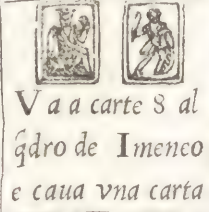 Va a carte 8 al
q̃dro de Imeneo
e caua vna carta